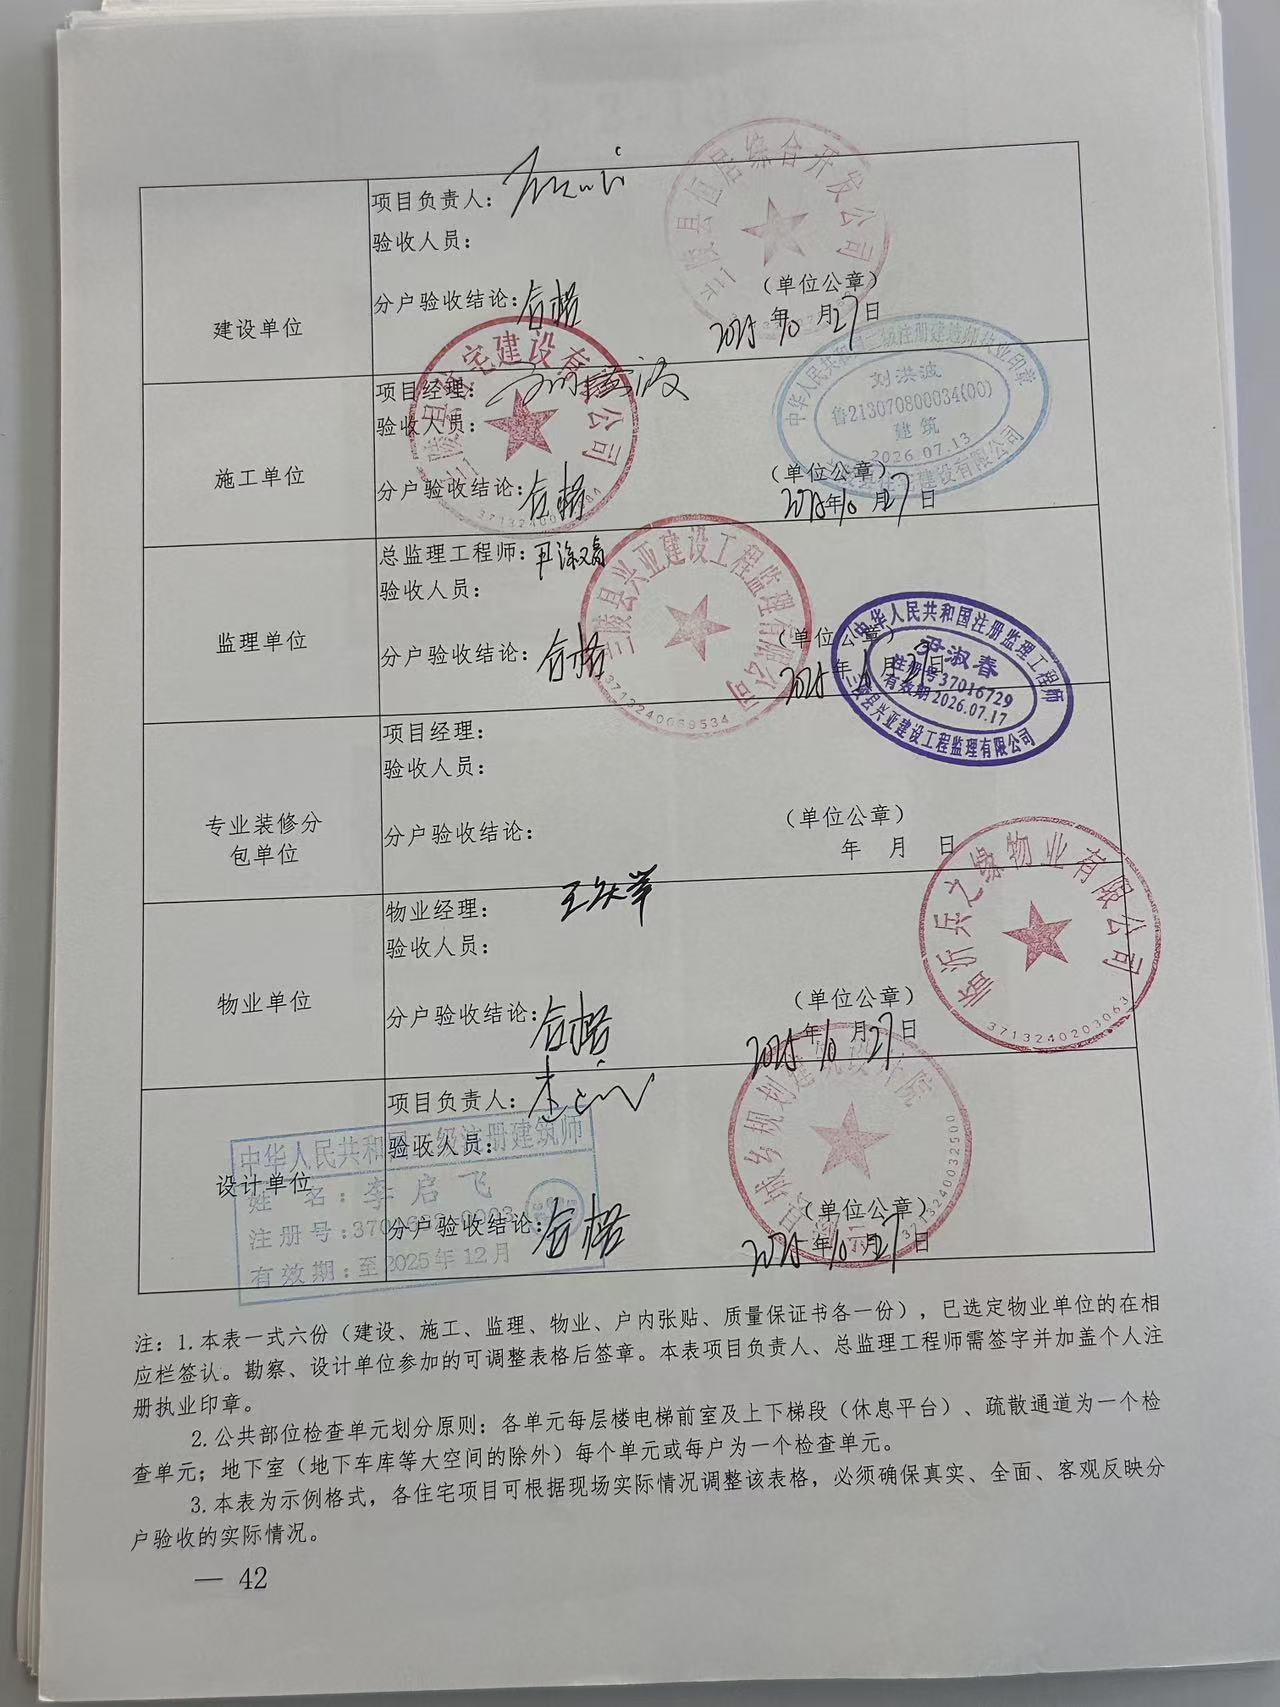 兰陵县恒居综合开发公司
项目负责人：
验收人员：
分户验收结论：合格
（单位公章）
2025年10月27日
建设单位
中华人民共和国二级注册建造师执业印章
刘洪波
鲁213070800034(00)
建筑
2026.07.13
项目经理：刘洪波
验收人员：
分户验收结论：合格
（单位公章）
2025年10月27日
施工单位
总监理工程师：尹淑春
验收人员：
分户验收结论：合格
（单位公章）
2025年10月27日
监理单位
兰陵县兴亚建设工程监理有限公司
3713240069534
中华人民共和国注册监理工程师
尹淑春
注册号37016729
有效期2026.07.17
兰陵县兴亚建设工程监理有限公司
项目经理：
验收人员：
分户验收结论：
（单位公章）
年 月 日
专业装修分
包单位
物业经理：
验收人员：
分户验收结论：合格
（单位公章）
2025年10月27日
物业单位
临沂兵之缘物业有限公司
3713240203063
项目负责人：
验收人员：
分户验收结论：合格
（单位公章）
2025年10月27日
设计单位
城乡规划建筑设计院
3713240032500
中华人民共和国二级注册建筑师
姓 名：李启飞
注册号：
有效期：至2025年12月
注：1.本表一式六份（建设、施工、监理、物业、户内张贴、质量保证书各一份），已选定物业单位的在相
应栏签认。勘察、设计单位参加的可调整表格后签章。本表项目负责人、总监理工程师需签字并加盖个人注
册执业印章。
2.公共部位检查单元划分原则：各单元每层楼电梯前室及上下梯段（休息平台）、疏散通道为一个检
查单元；地下室（地下车库等大空间的除外）每个单元或每户为一个检查单元。
3.本表为示例格式，各住宅项目可根据现场实际情况调整该表格，必须确保真实、全面、客观反映分
户验收的实际情况。
— 42